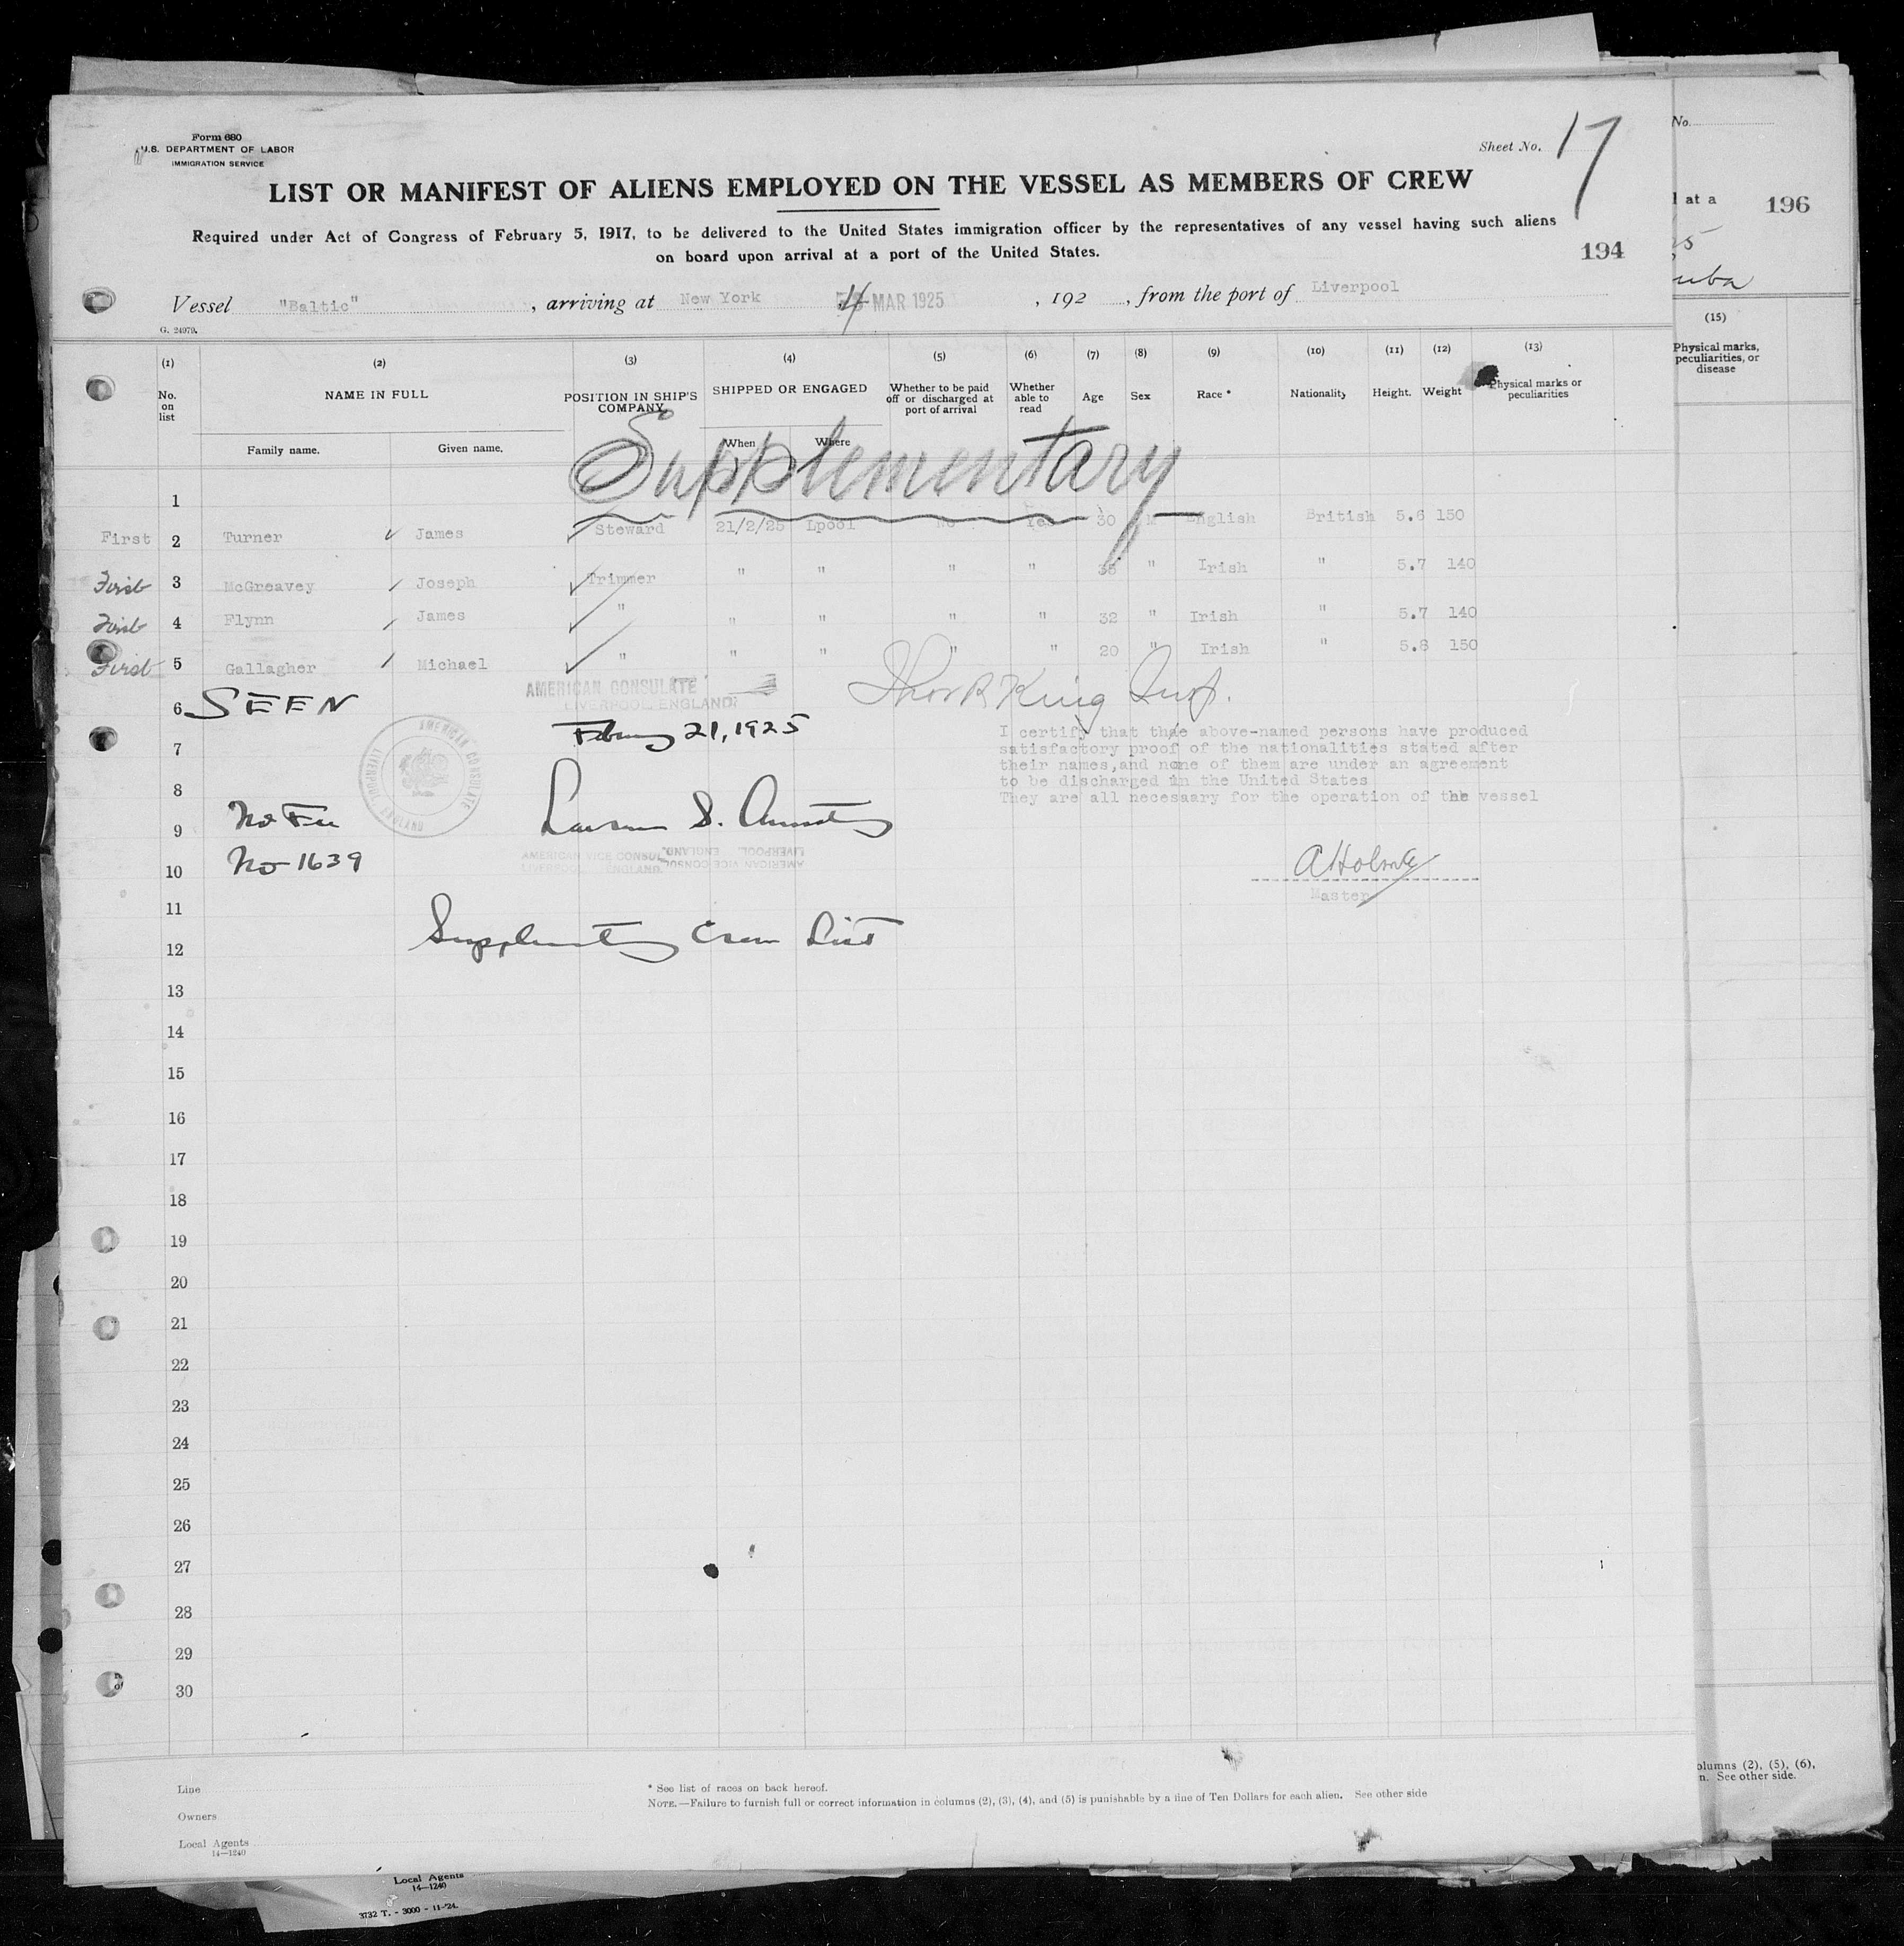 Form 680
U.S. DEPARTMENT OF LABOR
IMMIGRATION SERVICE
Sheet No. 17
LIST OR MANIFEST OF ALIENS EMPLOYED ON THE VESSEL AS MEMBERS OF CREW
Required under Act of Congress of February 5, 1917, to be delivered to the United States immigration officer by the representatives of any vessel having such aliens
on board upon arrival at a port of the United States.
194
Vessel "Baltic", arriving at New York 4 MAR 1925, 192 , from the port of Liverpool
G. 24979.
(1) (2) (3) (4) (5) (6) (7) (8) (9) (10) (11) (12) (13)
No. on list NAME IN FULL POSITION IN SHIP'S COMPANY SHIPPED OR ENGAGED Whether to be paid off or discharged at port of arrival Whether able to read Age Sex Race * Nationality Height. Weight Physical marks or peculiarities
Family name. Given name. When Where
Supplementary
1
First 2 Turner James Steward 21/2/25 Lpool No Yes 30 M English British 5.6 150
First 3 McGreavey Joseph Trimmer " " " " " Irish " 5.7 140
First 4 Flynn James " " " " " 32 " Irish " 5.7 140
First 5 Gallagher Michael " " " " " 20 " Irish " 5.8 150
6 SEEN
AMERICAN CONSULATE
LIVERPOOL, ENGLAND
King Insp.
February 21, 1925
AMERICAN CONSULATE LIVERPOOL, ENGLAND
I certify that the above-named persons have produced
satisfactory proof of the nationalities stated after
their names, and none of them are under an agreement
to be discharged in the United States
They are all necesaary for the operation of the vessel
7
8
9 No Fee
10 No 1639
AMERICAN VICE CONSUL
LIVERPOOL, ENGLAND.
AMERICAN VICE CONSUL
LIVERPOOL, ENGLAND.
Master
11
12 Supplementary Crew List
13
14
15
16
17
18
19
20
21
22
23
24
25
26
27
28
29
30
Line
Owners
Local Agents
14—1240
* See list of races on back hereof.
NOTE.—Failure to furnish full or correct information in columns (2), (3), (4), and (5) is punishable by a fine of Ten Dollars for each alien. See other side
No.
l at a 196
uba
(15)
Physical marks, peculiarities, or disease
olumns (2), (5), (6),
n. See other side.
Local Agents
14—1240
3732 T. - 3000 - 11-'24.